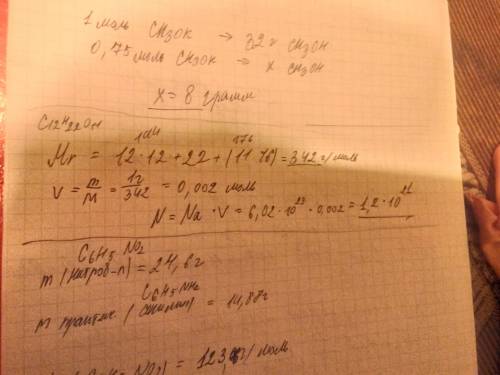 1 моль CH3OK → 32 г CH3OH
0,75 моль CH3OK → x CH3OH
x = 8 грамм
C12H22O11
144 176
Mr = 12·12+22+(11·16) = 342 г/моль
V = m/M = 1г/342 = 0,002 моль
N = Na · V = 6,02·10²³ · 0,002 = 1,2·10²¹
C6H5NO2
m (нитроб-л) = 24,6г
C6H5NH2
m практич (анилин) = 14,88г
= 123 г/моль